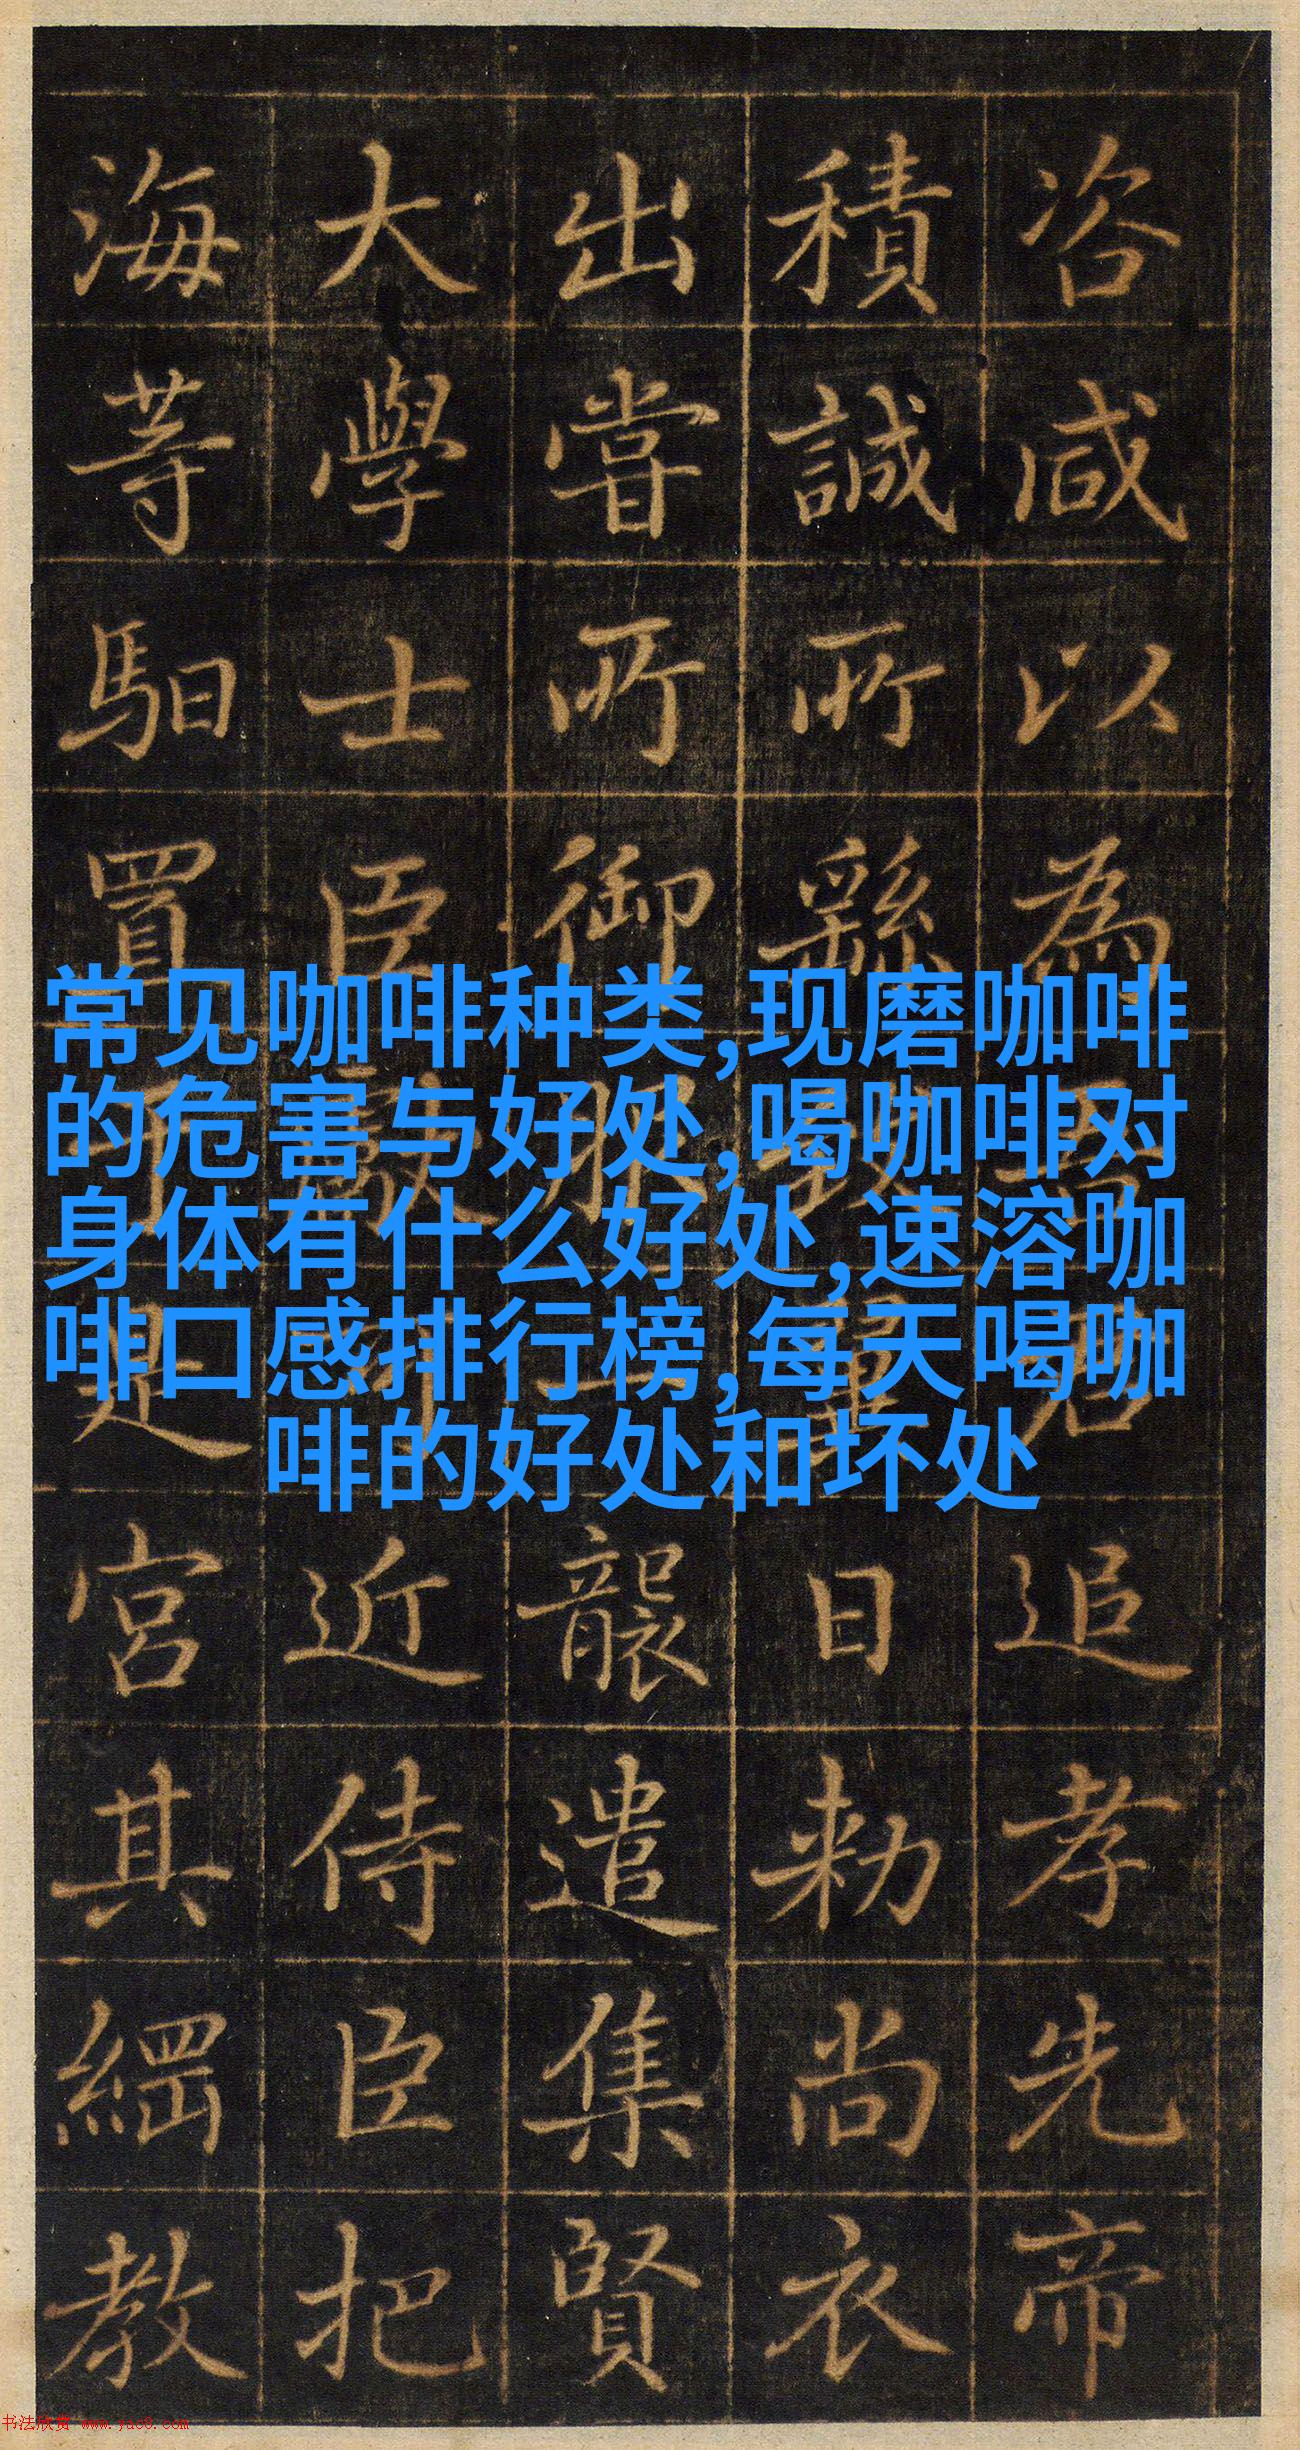 常见咖啡种类,现磨咖啡
的危害与好处,喝咖啡对
身体有什么好处,速溶咖
啡口感排行榜,每天喝咖
啡的好处和坏处
咨咸以為君追孝先帝
積誠所繇致日勑尚衣
出嘗所御服一襲遣集賢
大學士臣近侍臣把
海等馹置是宮其綱教
书法欣赏 www.yac8.com